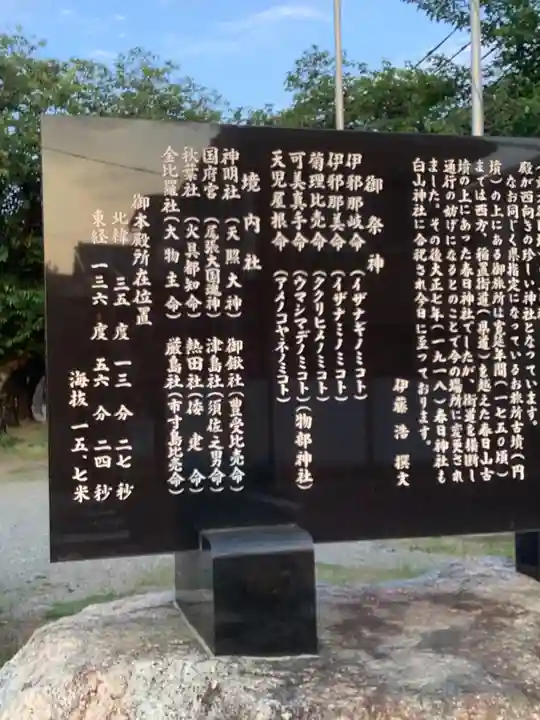 殿が西向きの珍しい神社となっています。
なお同じく県指定になっているお旅所古墳（円
墳）の上にある御旅所は寛延年間（一七五〇頃）
までは西方、稲置街道（県道）を越えた春日山古
墳の上にあった春日神社でしたが、街道を横断し
通行の妨げになるとのことで今の場所に変更され
ました。その後大正七年（一九一八）春日神社も
白山神社に合祀され今日に至っております。
伊藤 浩 撰文
御祭神
伊邪那岐命（イザナギノミコト）
伊邪那美命（イザナミノミコト）
菊理比売命（ククリヒメノミコト）
可美真手命（ウマシマデノミコト）（物部神社）
天児屋根命（アメノコヤネノミコト）
境内社
神明社（天照大神）御鍬社（豊受比売命）
国府宮（尾張大国霊神）津島社（須佐之男命）
秋葉社（火具都知命）熱田社（倭建命）
金比羅社（大物主命）厳島社（市寸島比売命）
御本殿所在位置
北緯 三五度 一三分 二七秒
東経 一三六度 五六分 二四秒
海抜 一五、七米